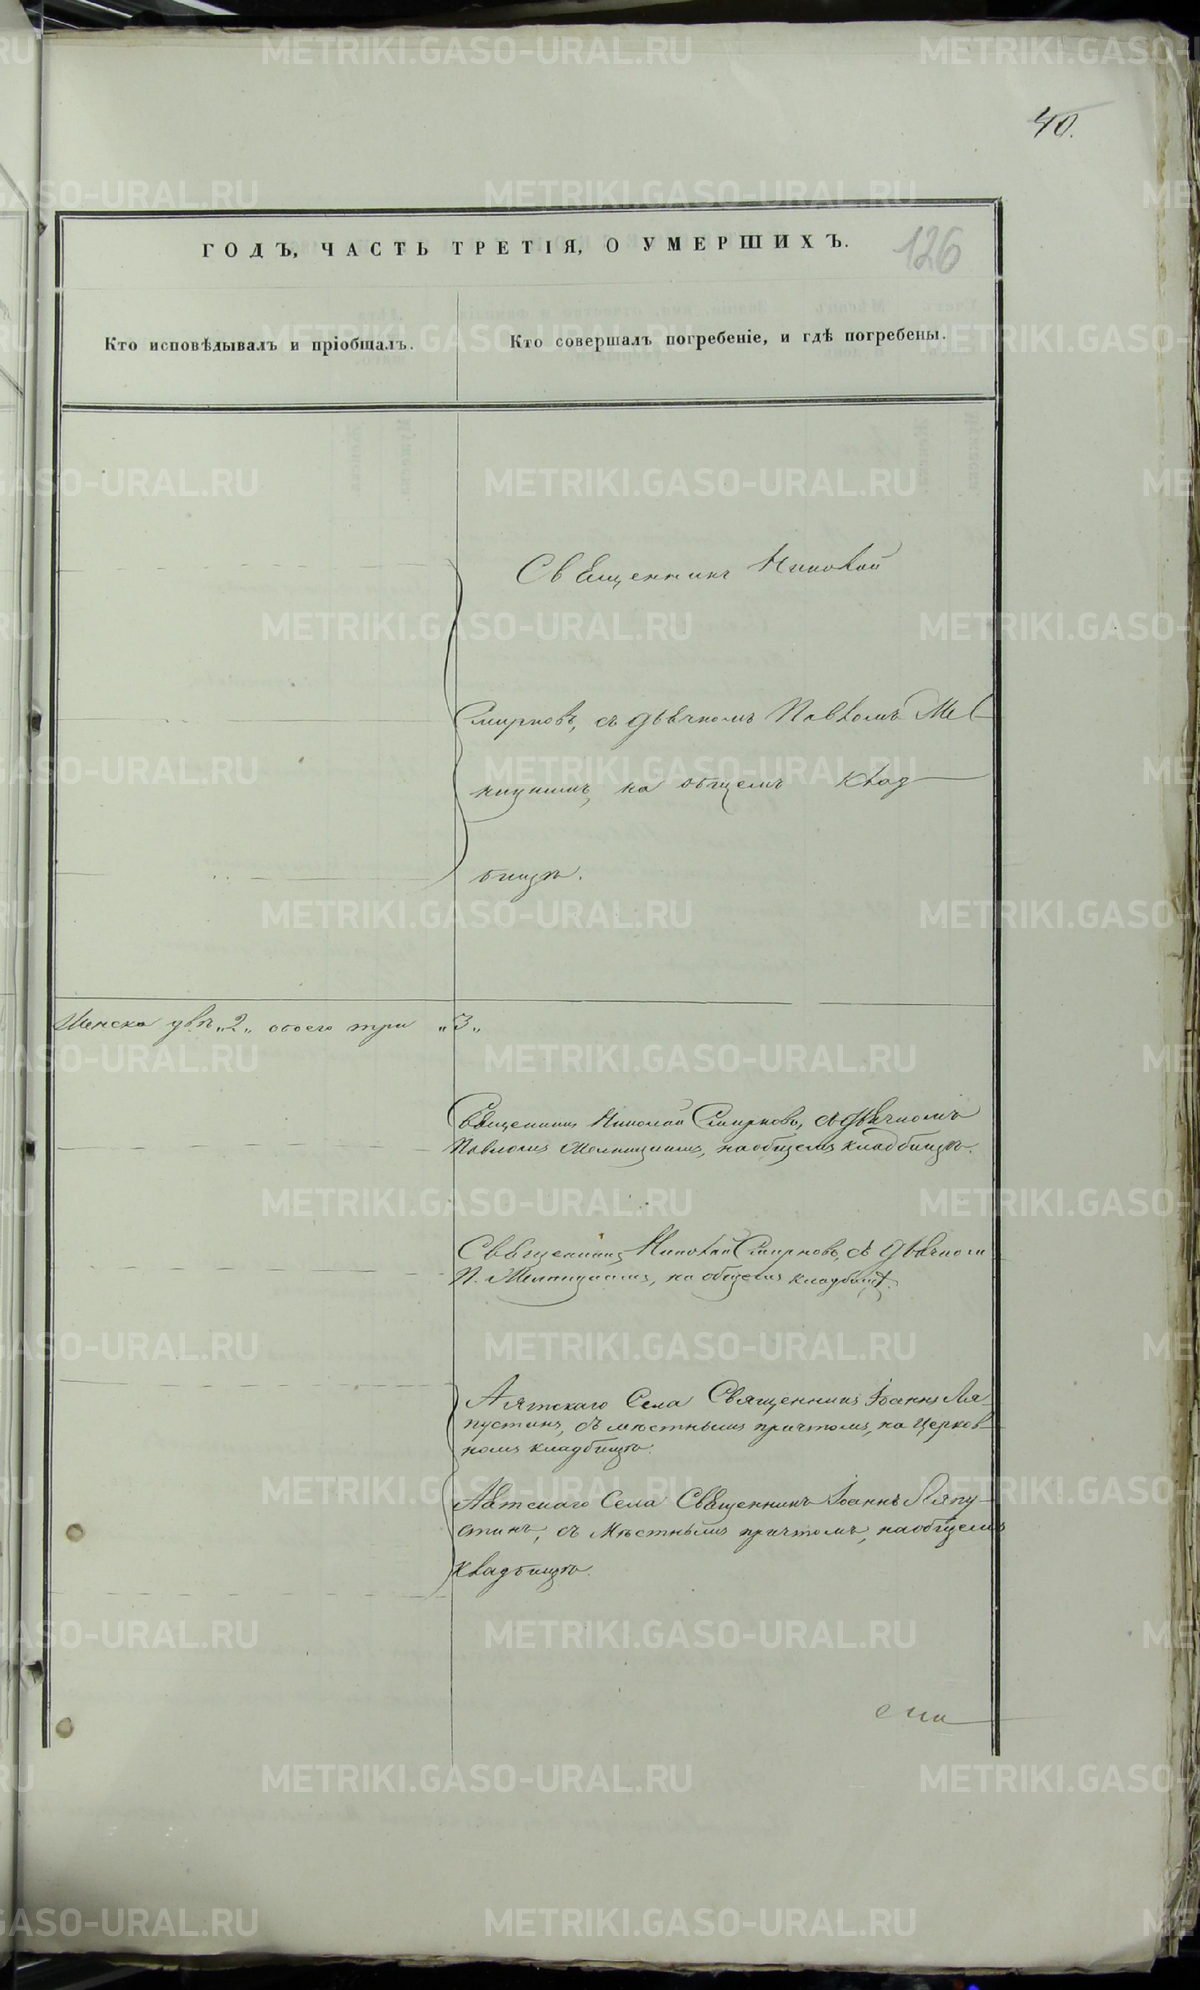 40.
ГОДЪ, ЧАСТЬ ТРЕТІЯ, О УМЕРШИХЪ.
126
Кто исповѣдывалъ и пріобщалъ.
Кто совершалъ погребеніе, и гдѣ погребены.
Священникъ Николай
Смирновъ, съ дьячкомъ Павломъ Мел
ницкимъ, на общемъ клад
бищѣ.
Женска двѣ „2„ обоего три „3„
Священникъ Николай Смирновъ, съ дьячкомъ
Павломъ Мелницкимъ, на общемъ кладбищѣ.
Священникъ Николай Смирновъ, съ дьячкомъ
П. Мелницкимъ, на общемъ кладбищѣ.
Аятскаго Села Священникъ Іоаннъ Ля-
пустинъ, съ мѣстнымъ причтомъ, на Церков-
номъ кладбищѣ.
Аятскаго Села Священникъ Іоаннъ Ляпу-
стинъ, съ мѣстнымъ причтомъ, на общемъ
кладбищѣ.
METRIKI.GASO-URAL.RU